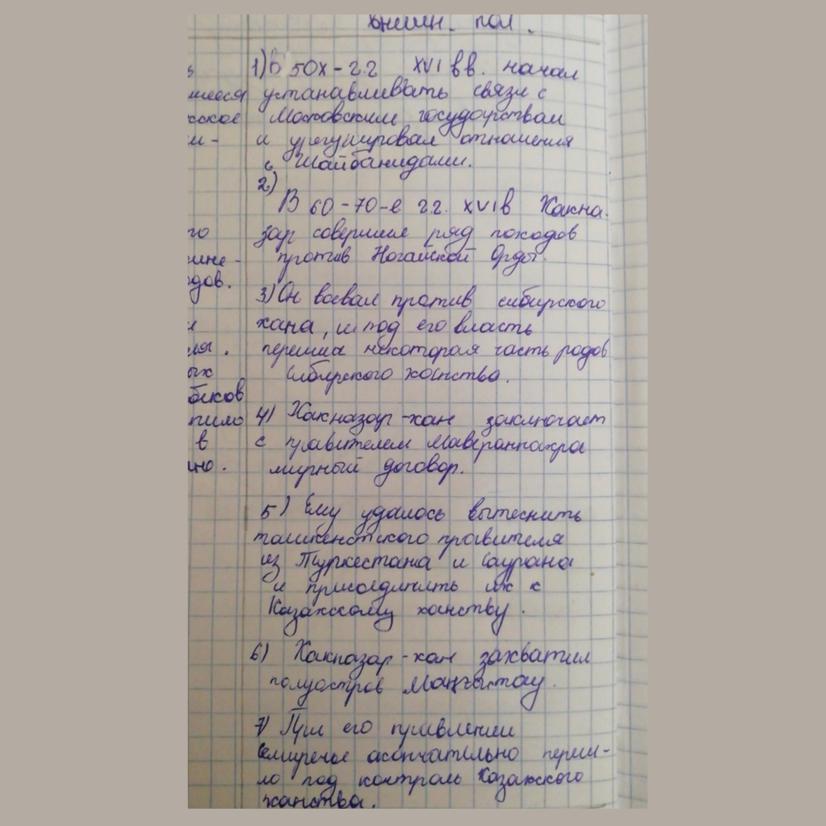 внешн. пол.
1) В 50х-г.г XVI вв. начал
шееся устанавливать связи с
ское Московским государством
и-
и урегулировал отношения
с Шайбанидами.
2)
В 60-70-е г.г. XVIв Хакна.
го зар совершил ряд походов
ине- против Ногайской Орды.
дов.
3) Он воевал против сибирского
и хана, и под его власть
ля. перешла некоторая часть родов
ых Сибирского ханства.
беков
пило 4) Хакназар-хан заключает
в с правителем Мавераннахра
но. мирный договор.
5) Ему удалось вытеснить
ташкентского правителя
из Туркестана и Саурана
и присоединить их к
Казахскому ханству.
6) Хакназар-хан захватил
полуостров Маңғыстау.
7) При его правлении
Семиречье окончательно переш-
ло под контроль Казахского
ханства.